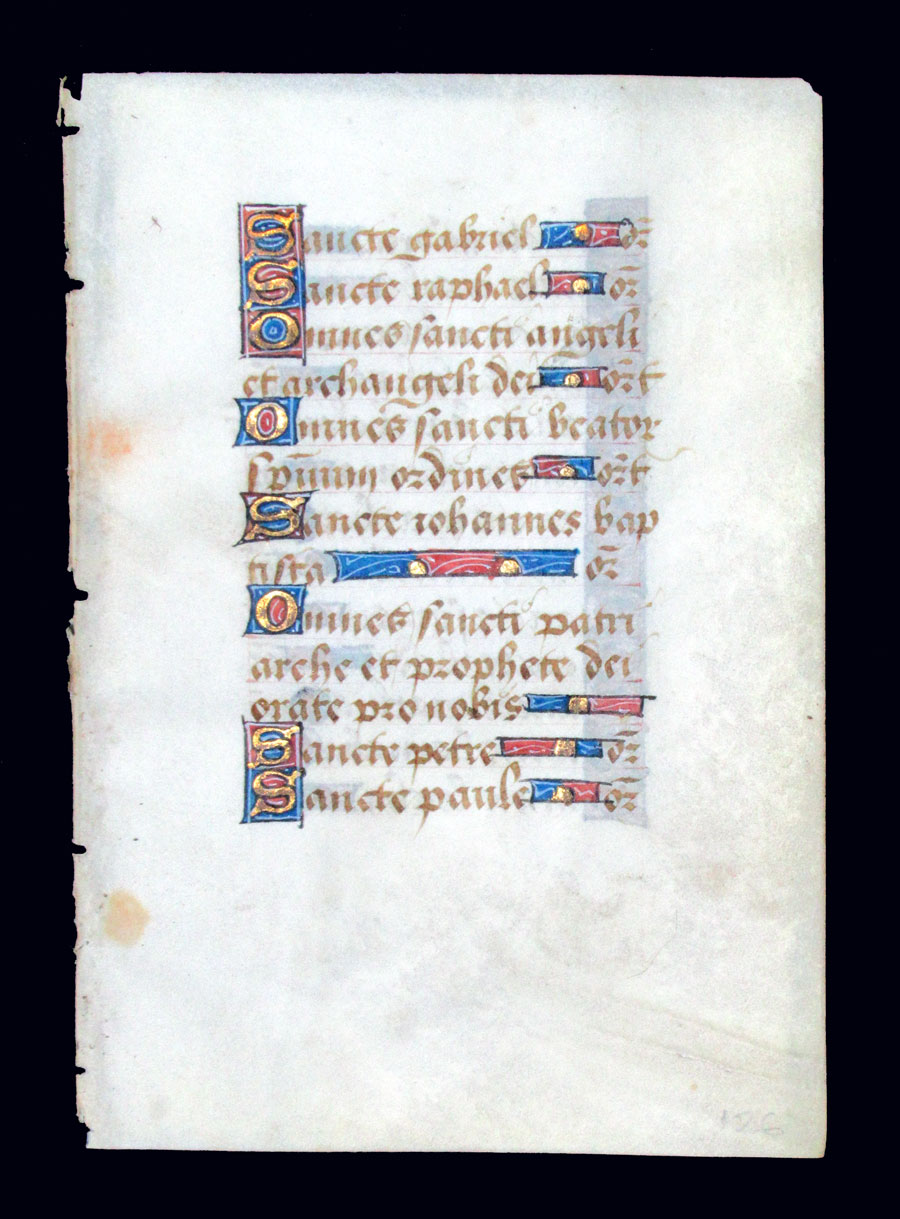 Sancte gabriel or̄
Sancte raphael or̄
Omnes sancti angeli
et archangeli dei or̄t
Omnes sancti beator
sp̄uum ordines or̄t
Sancte iohannes bap
tista or̄
Omnes sancti patri
arche et prophete dei
orate pro nobis
Sancte petre or̄
Sancte paule or̄
156